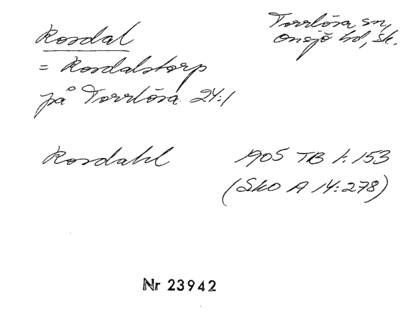 Rosdal
Torrlösa sn,
Onsjö hd, Sk.
= Rosdalstorp
på Torrlösa 24:1
Rosdahl
1905 TB 1:153
(SkO A 14:278)
Nr 23942